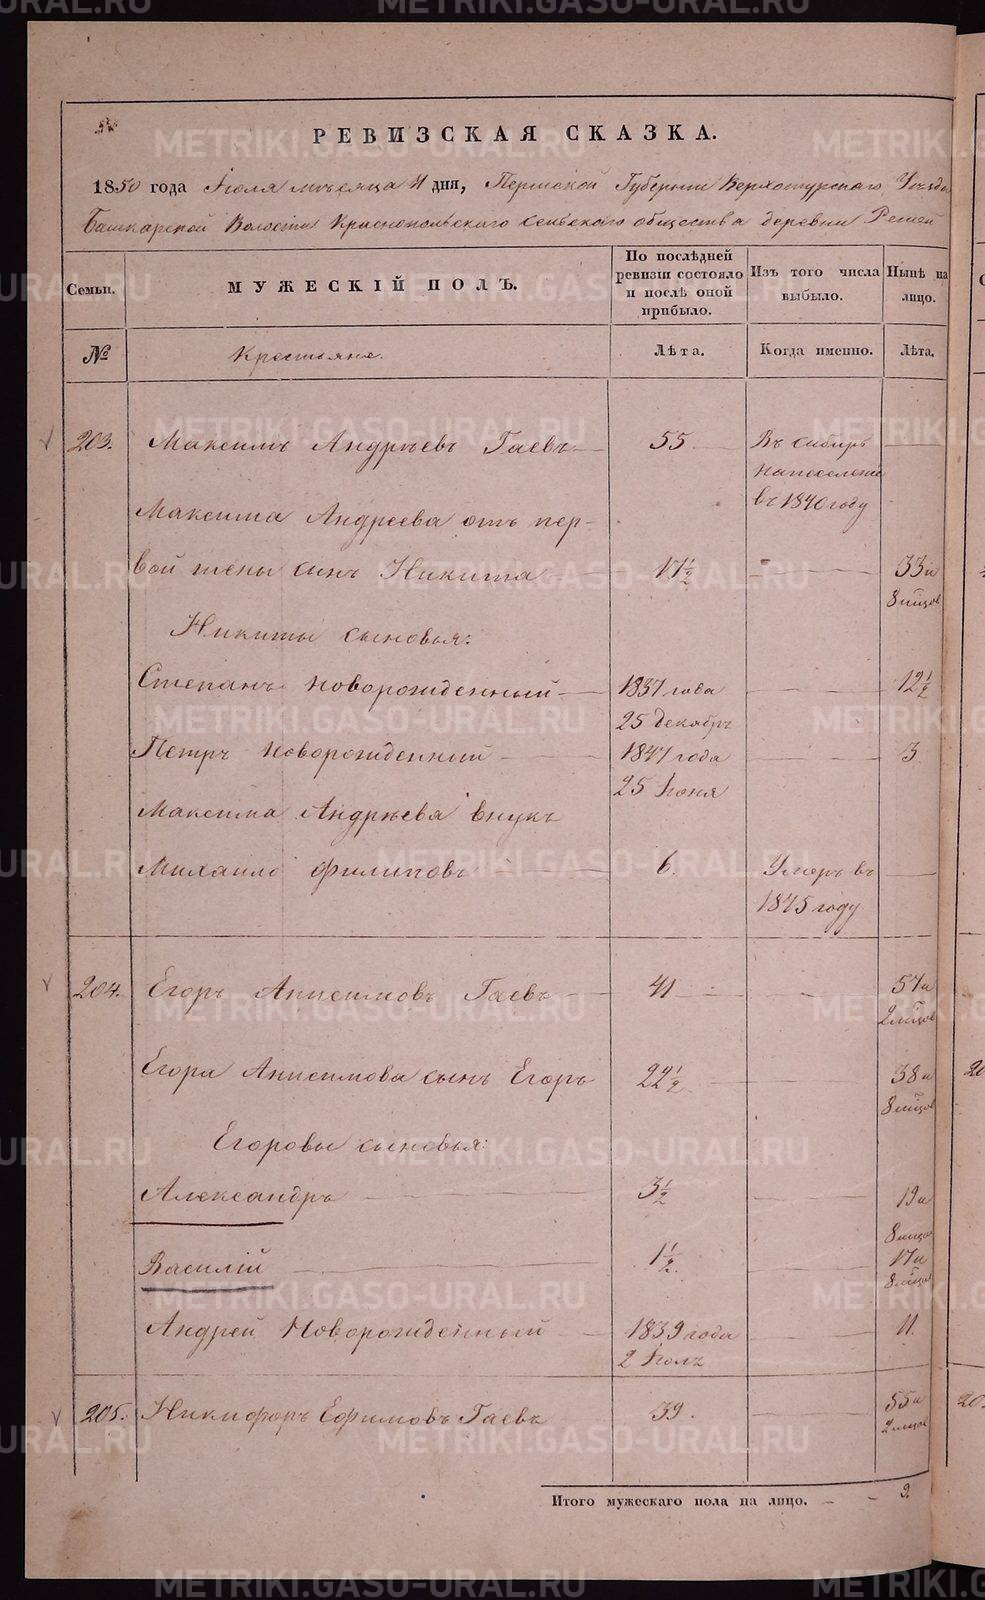 РЕВИЗСКАЯ СКАЗКА.
1850 года Іюля мѣсяца 11 дня, Пермской Губерніи Верхотурскаго Уѣзда
Башкарской Волости Краснопольскаго Сельскаго общества деревни Решей
Семьи.
МУЖЕСКІЙ ПОЛЪ.
По послѣдней ревизіи состояло и послѣ оной прибыло.
Изъ того числа выбыло.
Нынѣ на лицо.
№
Крестьяне.
Лѣта.
Когда именно.
Лѣта.
203. Максимъ Андрѣевъ Гаевъ 55 Въ сибирь
на поселеніе
въ 1840 году
Максима Андреева отъ пер-
вой жены сынъ Никита 17½ 33 и
8 мѣцов
Никиты сыновья:
Степанъ новорожденный 1837 года 12½
25 декабръ
Петръ новорожденный 1847 года 3
25 Іюня
Максима Андрѣева внукъ
Михаило Филиповъ 6. Умеръ въ
1845 году
204. Егоръ Анисимовъ Гаевъ 41 57 и
2 мѣцов
Егора Анисимова сынъ Егоръ 22½ 38 и
8 мѣцов
Егоровы сыновья:
Александръ 3½ 19 и
8 мѣцов
Василій 1½. 17 и
8 мѣцов
Андрей Новорожденный 1839 года 11.
2 Іюлъ
205. Никифоръ Ефимовъ Гаевъ 39. 55 и
2 мѣцов
Итого мужескаго пола на лицо. 9.
METRIKI.GASO-URAL.RU